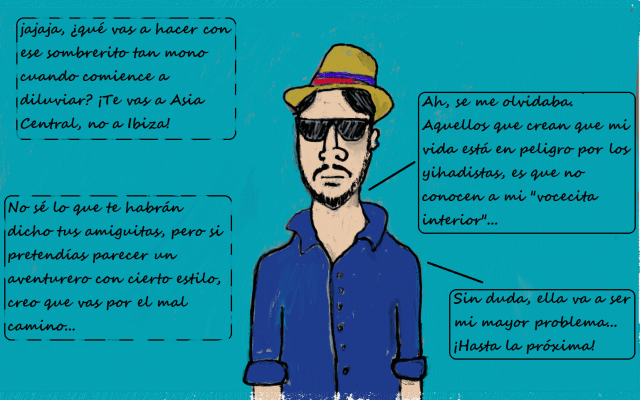 jajaja, ¿qué vas a hacer con
ese sombrerito tan mono
cuando comience a
diluviar? ¡Te vas a Asia
Central, no a Ibiza!
Ah, se me olvidaba.
Aquellos que crean que mi
vida está en peligro por los
yihadistas, es que no
conocen a mi "vocecita
interior"...
No sé lo que te habrán
dicho tus amiguitas, pero si
pretendías parecer un
aventurero con cierto estilo,
creo que vas por el mal
camino...
Sin duda, ella va a ser
mi mayor problema...
¡Hasta la próxima!